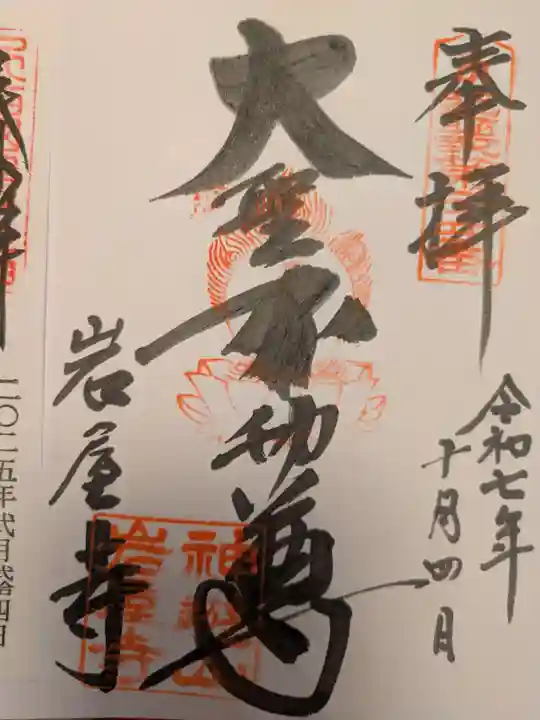 奉拝
令和七年
十月四日
大聖不動尊
岩屋寺
神遊山
岩屋寺
二〇二五年弐月拾四日